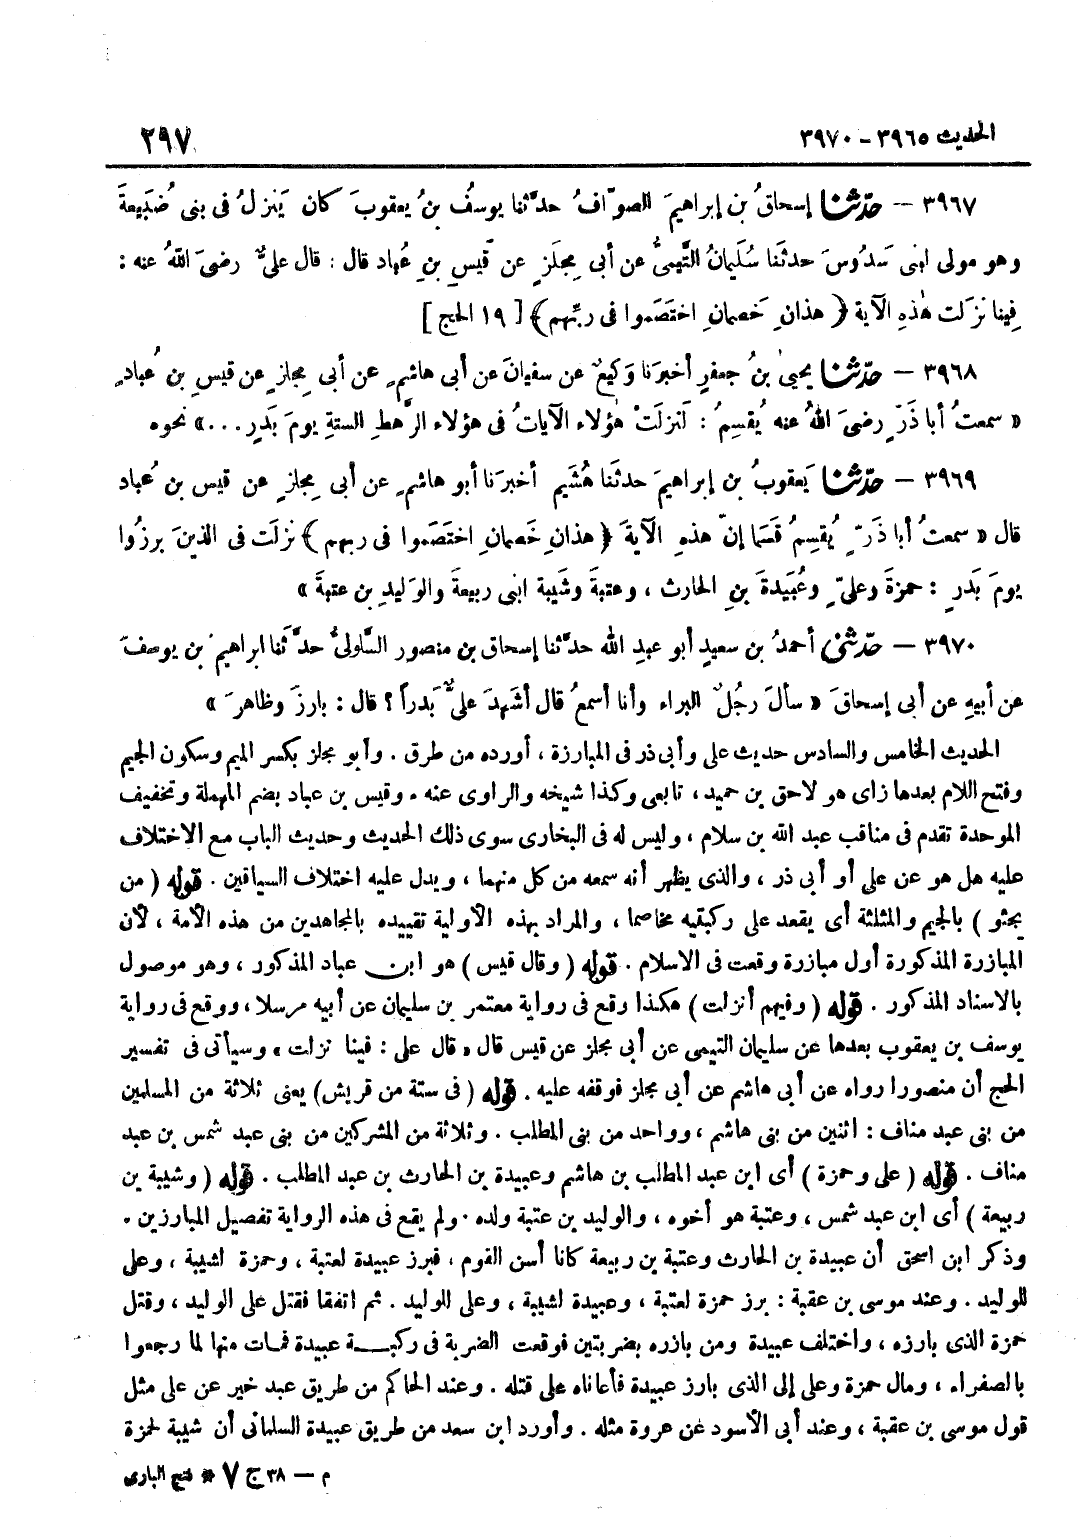 الحديث ٣٩٦٥ - ٣٩٧٠ ٢٩٧
٣٩٦٧ — حدّثنا إسحاقُ بن إبراهيمَ الصوّافُ حدَّثنا يوسفُ بنُ يعقوبَ كان يَنزِلُ فى بنى ضُبَيعةَ
وهو مولى لبنى سَدُوسَ حدثَنا سُلَيمانُ التَّيمىُّ عن أبى مِجلَزٍ عن قَيسِ بنِ عُبادٍ قال : قال علىٌّ رضىَ اللهُ عنه :
فِينا نزَلَت هٰذهِ الآية ﴿ هذانِ خَصمانِ اختَصَموا فى ربِّهم ﴾ [ ١٩ الحج ]
٣٩٦٨ — حدّثنا يحيىٰ بنُ جعفرٍ أخبرَنا وَكيعٌ عن سفيانَ عن أبى هاشمٍ عن أبى مِجلزٍ عن قيسِ بن عُبادٍ
« سمعتُ أبا ذَرّ رضىَ اللهُ عنه يُقسِمُ : لَنزلَتْ هٰؤلاء الآياتُ فى هؤلاء الرَّهطِ الستةِ يومَ بَدرٍ ... » نحوه
٣٩٦٩ — حدّثنا يَعقوبُ بن إبراهيمَ حدثَنا هُشَيم أخبرَنا أبو هاشمٍ عن أبى مِجلزٍ عن قيس بن عُباد
قال « سمعتُ أبا ذَرّ يُقسِمُ قَسَما إنّ هذهِ الآيةَ ﴿ هذانِ خَصمانِ اختَصَموا فى ربهم ﴾ نزلَت فى الذينَ برزُوا
يومَ بَدرٍ : حمزةَ وعلىّ وعُبَيدةَ بنِ الحارث ، وعتبةَ وشَيبة ابنى ربيعةَ والوَليدِ بن عتبةَ »
٣٩٧٠ — حدّثنى أحمدُ بن سعيدٍ أبو عبدِ الله حدَّثنا إسحاق بن منصور السَّلولىُّ حدَّثَنا ابراهيمُ بن يوسفَ
عن أبيهِ عن أبى إسحاقَ « سألَ رجُلٌ البراء وأنا أسمعُ قال أشَهِدَ علىٌّ بَدراً ؟ قال : بارزَ وظاهرَ »
الحديث الخامس والسادس حديث على وأبى ذر فى المبارزة ، أورده من طرق . وأبو مجلز بكسر الميم وسكون الجيم
وفتح اللام بعدها زاى هو لاحق بن حميد ، تابعى وكذا شيخه والراوى عنه . وقيس بن عباد بضم المهملة وتخفيف
الموحدة تقدم فى مناقب عبد الله بن سلام ، وليس له فى البخارى سوى ذلك الحديث وحديث الباب مع الاختلاف
عليه هل هو عن على أو أبى ذر ، والذى يظهر أنه سمعه من كل منهما ، ويدل عليه اختلاف السياقين . قوله ( من
يجثو ) بالجيم والمثلثة أى يقعد على ركبتيه مخاصما ، والمراد بهذه الأولية تقييده بالمجاهدين من هذه الأمة ، لأن
المبارزة المذكورة أول مبارزة وقعت فى الاسلام . قوله ( وقال قيس ) هو ابن عباد المذكور ، وهو موصول
بالاسناد المذكور . قوله ( وفيهم أنزلت ) هكذا وقع فى رواية معتمر بن سليمان عن أبيه مرسلا ، ووقع فى رواية
يوسف بن يعقوب بعدها عن سليمان التيمى عن أبى مجلز عن قيس قال « قال على : فينا نزلت » وسيأتى فى تفسير
الحج أن منصورا رواه عن أبى هاشم عن أبى مجلز فوقفه عليه . قوله ( فى ستة من قريش ) يعنى ثلاثة من المسلمين
من بنى عبد مناف : اثنين من بنى هاشم ، وواحد من بنى المطلب . وثلاثة من المشركين من بنى عبد شمس بن عبد
مناف . قوله ( على وحمزة ) أى ابن عبد المطلب بن هاشم وعبيدة بن الحارث بن عبد المطلب . قوله ( وشيبة بن
ربيعة ) أى ابن عبد شمس ، وعتبة هو أخوه ، والوليد بن عتبة ولده . ولم يقع فى هذه الرواية تفصيل المبارزين .
وذكر ابن اسحق أن عبيدة بن الحارث وعتبة بن ربيعة كانا أسن القوم ، فبرز عبيدة لعتبة ، وحمزة لشيبة ، وعلى
للوليد . وعند موسى بن عقبة : برز حمزة لعتبة ، وعبيدة لشيبة ، وعلى للوليد . ثم اتفقا فقتل على الوليد ، وقتل
حمزة الذى بارزه ، واختلف عبيدة ومن بارزه بضربتين فوقعت الضربة فى ركبة عبيدة فمات منها لما رجعوا
بالصفراء ، ومال حمزة وعلى إلى الذى بارز عبيدة فأعاناه على قتله . وعند الحاكم من طريق عبد خير عن على مثل
قول موسى بن عقبة ، وعند أبى الأسود عن عروة مثله . وأورد ابن سعد من طريق عبيدة السلمانى أن شيبة لحمزة
م — ٣٨ ج ٧ * فتح البارى